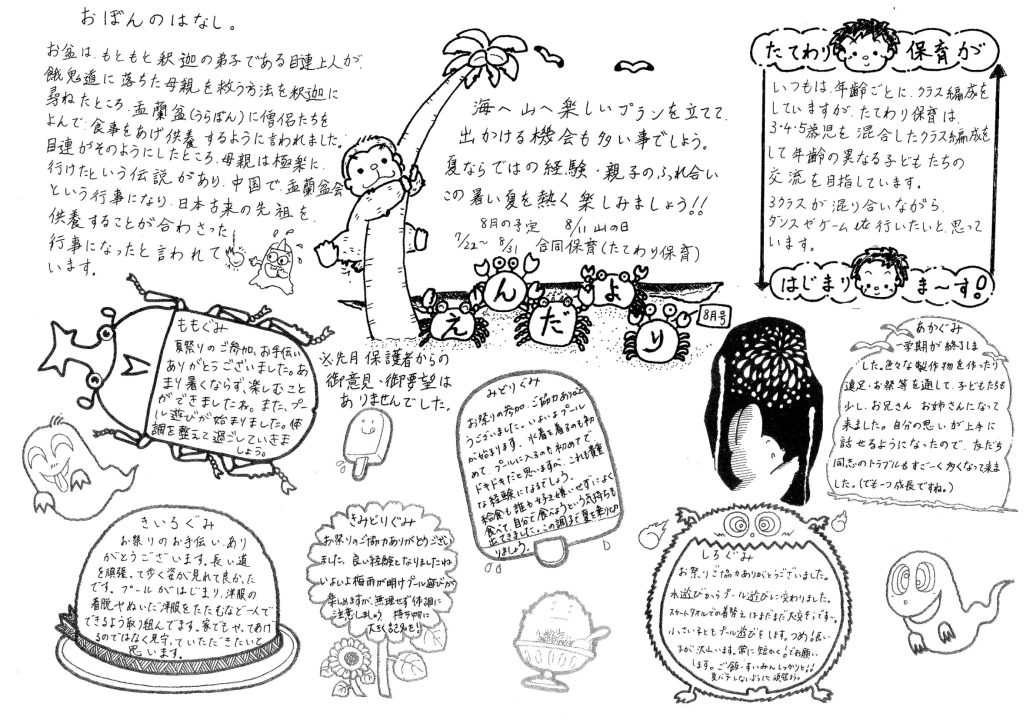 おぼんのはなし。
お盆は、もともと釈迦の弟子である目連上人が、
餓鬼道に落ちた母親を救う方法を釈迦に
尋ねたところ、盂蘭盆(うらぼん)に僧侶たちを
よんで、食事をあげ供養するように言われました。
目連がそのようにしたところ、母親は極楽に、
行けたという伝説があり、中国で、盂蘭盆会
という行事になり、日本古来の先祖を、
供養することが合わさった
行事になったと言われて
います。
海へ山へ楽しいプランを立てて、
出かける機会も多い事でしょう。
夏ならではの経験・親子のふれ合い
この暑い夏を熱く楽しみましょう!!
8月の予定 8/11 山の日
7/22〜8/31 合同保育(たてわり保育)
えんだより
8月号
たてわり保育が
いつもは、年齢ごとに、クラス編成を
していますが、たてわり保育は、
3・4・5歳児を混合したクラス編成を
して年齢の異なる子どもたちの
交流を目指しています。
3クラスが混り合いながら、
ダンスやゲームを行いたいと思って
います。
はじまりま〜す!
ももぐみ
夏祭りのご参加、お手伝い
ありがとうございました。あ
まり暑くならず、楽しむこと
ができましたね。また、プー
ル遊びが始まりました。体
調を整えて過ごしていきま
しょう。
※先月保護者からの
御意見・御要望は
ありませんでした。
みどりぐみ
お祭りの参加、ご協力ありがと
うございました。いよいよプール
が始まります。水着を着るのも初
めて、プールに入るのも初めてで、
ドキドキだと思いますが、これも貴重
な経験になるでしょう。
給食も誰も好き嫌いせずによく
食べて、自分で食べようという気持ちも
出てきました。この調子で夏を乗り切
りましょう。
あかぐみ
一学期が終了しま
した。色々な製作物を作ったり
遠足・お祭等を通して、子どもたちも
少し、お兄さん お姉さんになって
来ました。自分の思いが上手に
話せるようになったので、友だち
同志のトラブルもすご〜く多くなって来ま
した。(でも一つ成長ですね。)
きいろぐみ
お祭りのお手伝い、あり
がとうございます。長い道
を頑張って歩く姿が見れて良かった
です。プールがはじまり、洋服の
着脱やぬいだ洋服をたたむなど一人で
できるよう取り組んでます。家でもやってあげ
るのではなく見守っていただきたいと
思います。
きみどりぐみ
お祭りのご協力ありがとうござい
ました。良い経験となりましたね
いよいよ梅雨が明けプール遊びが
楽しめますが、無理せず体調に
注意しましょう。 持ち物に
大きく記名を!
しろぐみ
お祭りご協力ありがとうございました。
水遊びからプール遊びに変わりました。
スカートタオルでの着替えはまだまだ大変そうです。
小さい子ともプール遊びをします。つめの長い
子が沢山います。常に短かく!でお願い
します。ご飯・すいみんしっかりと!!
夏バテしないように頑張ろう。